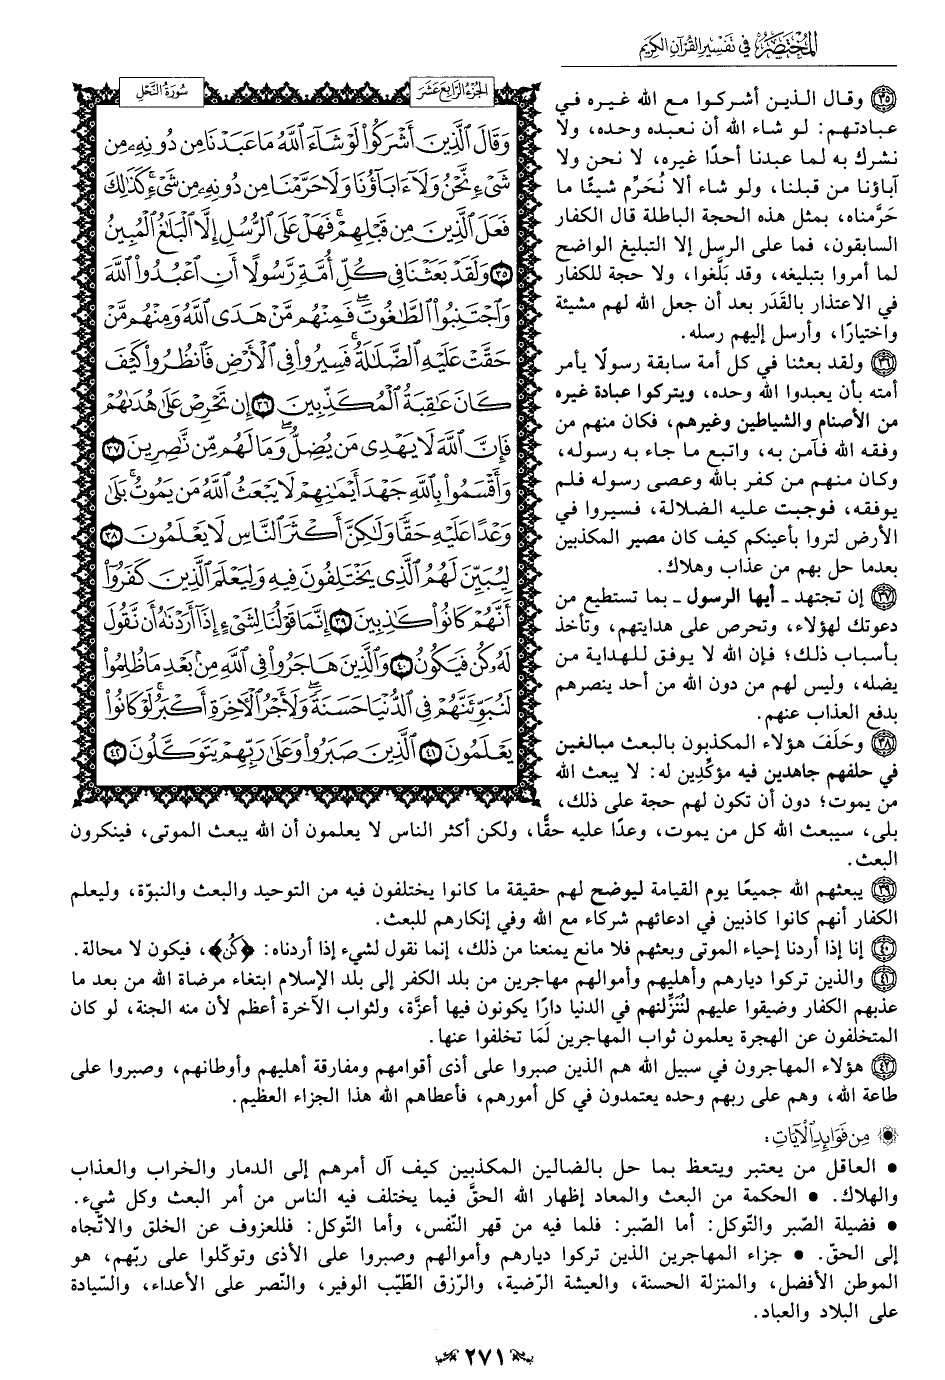 المختصر في تفسير القرآن الكريم
سورة النحل
الجزء الرابع عشر
وَقَالَ الَّذِينَ أَشْرَكُوا لَوْ شَاءَ اللَّهُ مَا عَبَدْنَا مِن دُونِهِ مِن
شَيْءٍ نَّحْنُ وَلَا ءَابَاؤُنَا وَلَا حَرَّمْنَا مِن دُونِهِ مِن شَيْءٍ كَذَٰلِكَ
فَعَلَ الَّذِينَ مِن قَبْلِهِمْ فَهَلْ عَلَى الرُّسُلِ إِلَّا الْبَلَٰغُ الْمُبِينُ
٣٥ وَلَقَدْ بَعَثْنَا فِي كُلِّ أُمَّةٍ رَّسُولًا أَنِ اعْبُدُوا اللَّهَ
وَاجْتَنِبُوا الطَّٰغُوتَ فَمِنْهُم مَّنْ هَدَى اللَّهُ وَمِنْهُم مَّنْ
حَقَّتْ عَلَيْهِ الضَّلَٰلَةُ فَسِيرُوا فِي الْأَرْضِ فَانظُرُوا كَيْفَ
كَانَ عَٰقِبَةُ الْمُكَذِّبِينَ ٣٦ إِن تَحْرِصْ عَلَىٰ هُدَىٰهُمْ
فَإِنَّ اللَّهَ لَا يَهْدِي مَن يُضِلُّ وَمَا لَهُم مِّن نَّٰصِرِينَ ٣٧
وَأَقْسَمُوا بِاللَّهِ جَهْدَ أَيْمَٰنِهِمْ لَا يَبْعَثُ اللَّهُ مَن يَمُوتُ بَلَىٰ
وَعْدًا عَلَيْهِ حَقًّا وَلَٰكِنَّ أَكْثَرَ النَّاسِ لَا يَعْلَمُونَ ٣٨
لِيُبَيِّنَ لَهُمُ الَّذِي يَخْتَلِفُونَ فِيهِ وَلِيَعْلَمَ الَّذِينَ كَفَرُوا
أَنَّهُمْ كَانُوا كَٰذِبِينَ ٣٩ إِنَّمَا قَوْلُنَا لِشَيْءٍ إِذَا أَرَدْنَٰهُ أَن نَّقُولَ
لَهُ كُن فَيَكُونُ ٤٠ وَالَّذِينَ هَاجَرُوا فِي اللَّهِ مِن بَعْدِ مَا ظُلِمُوا
لَنُبَوِّئَنَّهُمْ فِي الدُّنْيَا حَسَنَةً وَلَأَجْرُ الْآخِرَةِ أَكْبَرُ لَوْ كَانُوا
يَعْلَمُونَ ٤١ الَّذِينَ صَبَرُوا وَعَلَىٰ رَبِّهِمْ يَتَوَكَّلُونَ ٤٢
٣٥ وقال الذين أشركوا مع الله غيره في
عبادتهم: لو شاء الله أن نعبده وحده، ولا
نشرك به لما عبدنا أحدًا غيره، لا نحن ولا
آباؤنا من قبلنا، ولو شاء ألا نُحَرِّم شيئًا ما
حَرَّمناه، بمثل هذه الحجة الباطلة قال الكفار
السابقون، فما على الرسل إلا التبليغ الواضح
لما أمروا بتبليغه، وقد بَلَّغوا، ولا حجة للكفار
في الاعتذار بالقَدَر بعد أن جعل الله لهم مشيئة
واختيارًا، وأرسل إليهم رسله.
٣٦ ولقد بعثنا في كل أمة سابقة رسولًا يأمر
أمته بأن يعبدوا الله وحده، ويتركوا عبادة غيره
من الأصنام والشياطين وغيرهم، فكان منهم من
وفقه الله فآمن به، واتبع ما جاء به رسوله،
وكان منهم من كفر بالله وعصى رسوله فلم
يوفقه، فوجبت عليه الضلالة، فسيروا في
الأرض لتروا بأعينكم كيف كان مصير المكذبين
بعدما حل بهم من عذاب وهلاك.
٣٧ إن تجتهد ـ أيها الرسول ـ بما تستطيع من
دعوتك لهؤلاء، وتحرص على هدايتهم، وتأخذ
بأسباب ذلك؛ فإن الله لا يوفق للهداية من
يضله، وليس لهم من دون الله من أحد ينصرهم
بدفع العذاب عنهم.
٣٨ وحَلَفَ هؤلاء المكذبون بالبعث مبالغين
في حلفهم جاهدين فيه مؤكِّدين له: لا يبعث الله
من يموت؛ دون أن تكون لهم حجة على ذلك،
بلى، سيبعث الله كل من يموت، وعدًا عليه حقًّا، ولكن أكثر الناس لا يعلمون أن الله يبعث الموتى، فينكرون
البعث.
٣٩ يبعثهم الله جميعًا يوم القيامة ليوضح لهم حقيقة ما كانوا يختلفون فيه من التوحيد والبعث والنبوّة، وليعلم
الكفار أنهم كانوا كاذبين في ادعائهم شركاء مع الله وفي إنكارهم للبعث.
٤٠ إنا إذا أردنا إحياء الموتى وبعثهم فلا مانع يمنعنا من ذلك، إنما نقول لشيء إذا أردناه: ﴿كُن﴾، فيكون لا محالة.
٤١ والذين تركوا ديارهم وأهليهم وأموالهم مهاجرين من بلد الكفر إلى بلد الإسلام ابتغاء مرضاة الله من بعد ما
عذبهم الكفار وضيقوا عليهم لَنُنَزِّلنهم في الدنيا دارًا يكونون فيها أعزَّة، ولثواب الآخرة أعظم لأن منه الجنة، لو كان
المتخلفون عن الهجرة يعلمون ثواب المهاجرين لَمَا تخلفوا عنها.
٤٢ هؤلاء المهاجرون في سبيل الله هم الذين صبروا على أذى أقوامهم ومفارقة أهليهم وأوطانهم، وصبروا على
طاعة الله، وهم على ربهم وحده يعتمدون في كل أمورهم، فأعطاهم الله هذا الجزاء العظيم.
من فوائد الآيات:
• العاقل من يعتبر ويتعظ بما حل بالضالين المكذبين كيف آل أمرهم إلى الدمار والخراب والعذاب
والهلاك. • الحكمة من البعث والمعاد إظهار الله الحقَّ فيما يختلف فيه الناس من أمر البعث وكل شيء.
• فضيلة الصّبر والتّوكل: أما الصّبر: فلما فيه من قهر النّفس، وأما التّوكل: فللعزوف عن الخلق والاتّجاه
إلى الحقّ. • جزاء المهاجرين الذين تركوا ديارهم وأموالهم وصبروا على الأذى وتوكّلوا على ربّهم، هو
الموطن الأفضل، والمنزلة الحسنة، والعيشة الرّضية، والرّزق الطّيّب الوفير، والنّصر على الأعداء، والسّيادة
على البلاد والعباد.
٢٧١